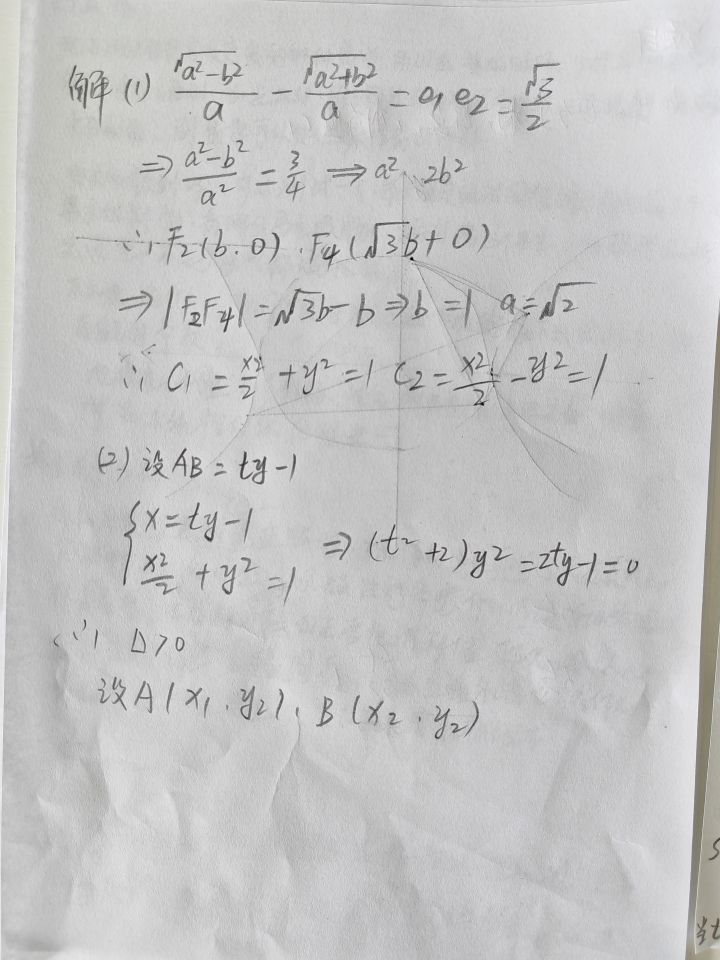 解(1) √(a²-b²)/a - √(a²+b²)/a = e₁e₂ = √3/2
⇒ (a²-b²)/a² = 3/4 ⇒ a² 2b²
∴ F₂(b.0).F₄(√3b+0)
⇒ |F₂F₄| = √3b-b ⇒ b=1 a=√2
∴ C₁ = x²/2 + y² = 1 C₂ = x²/2 - y² = 1
(2) 设AB = ty-1
{x = ty-1
x²/2 + y² = 1 ⇒ (t²+2)y² = 2ty-1=0
∴ Δ>0
设A(x₁.y₂).B(x₂.y₂)